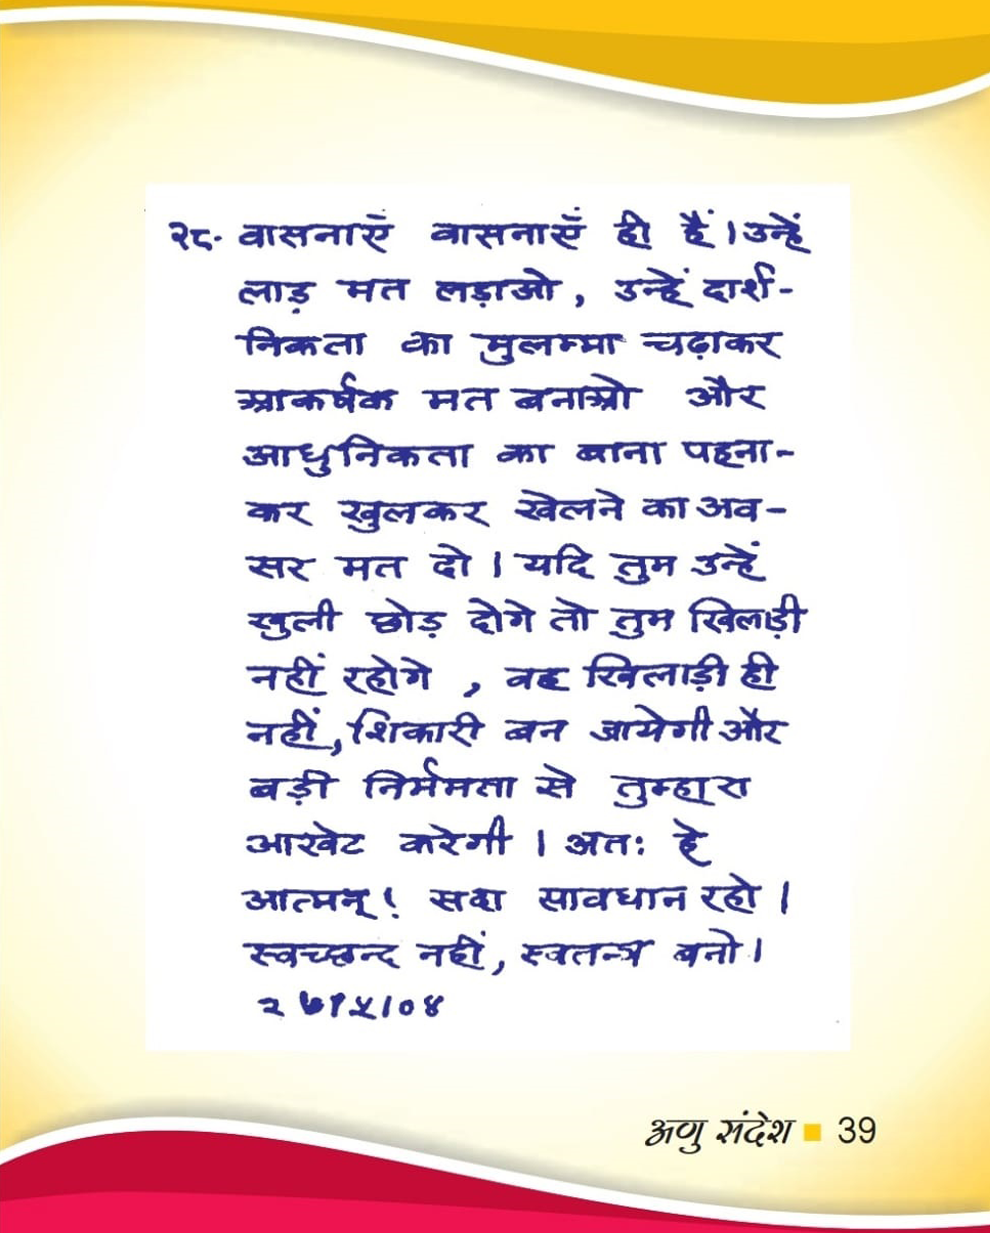 २८. वासनाएँ वासनाएँ ही हैं। उन्हें
लाड़ मत लड़ाओ, उन्हें दार्श-
निकता का मुलम्मा चढ़ाकर
आकर्षक मत बनाओ और
आधुनिकता का बाना पहना-
कर खुलकर खेलने का अव-
सर मत दो। यदि तुम उन्हें
खुली छोड़ दोगे तो तुम खिलाड़ी
नहीं रहोगे, वह खिलाड़ी ही
नहीं, शिकारी बन जायेगी और
बड़ी निर्ममता से तुम्हारा
आखेट करेगी। अतः हे
आत्मन्! सदा सावधान रहो।
स्वच्छन्द नहीं, स्वतन्त्र बनो।
२७/५/०४
अणु संदेश 39